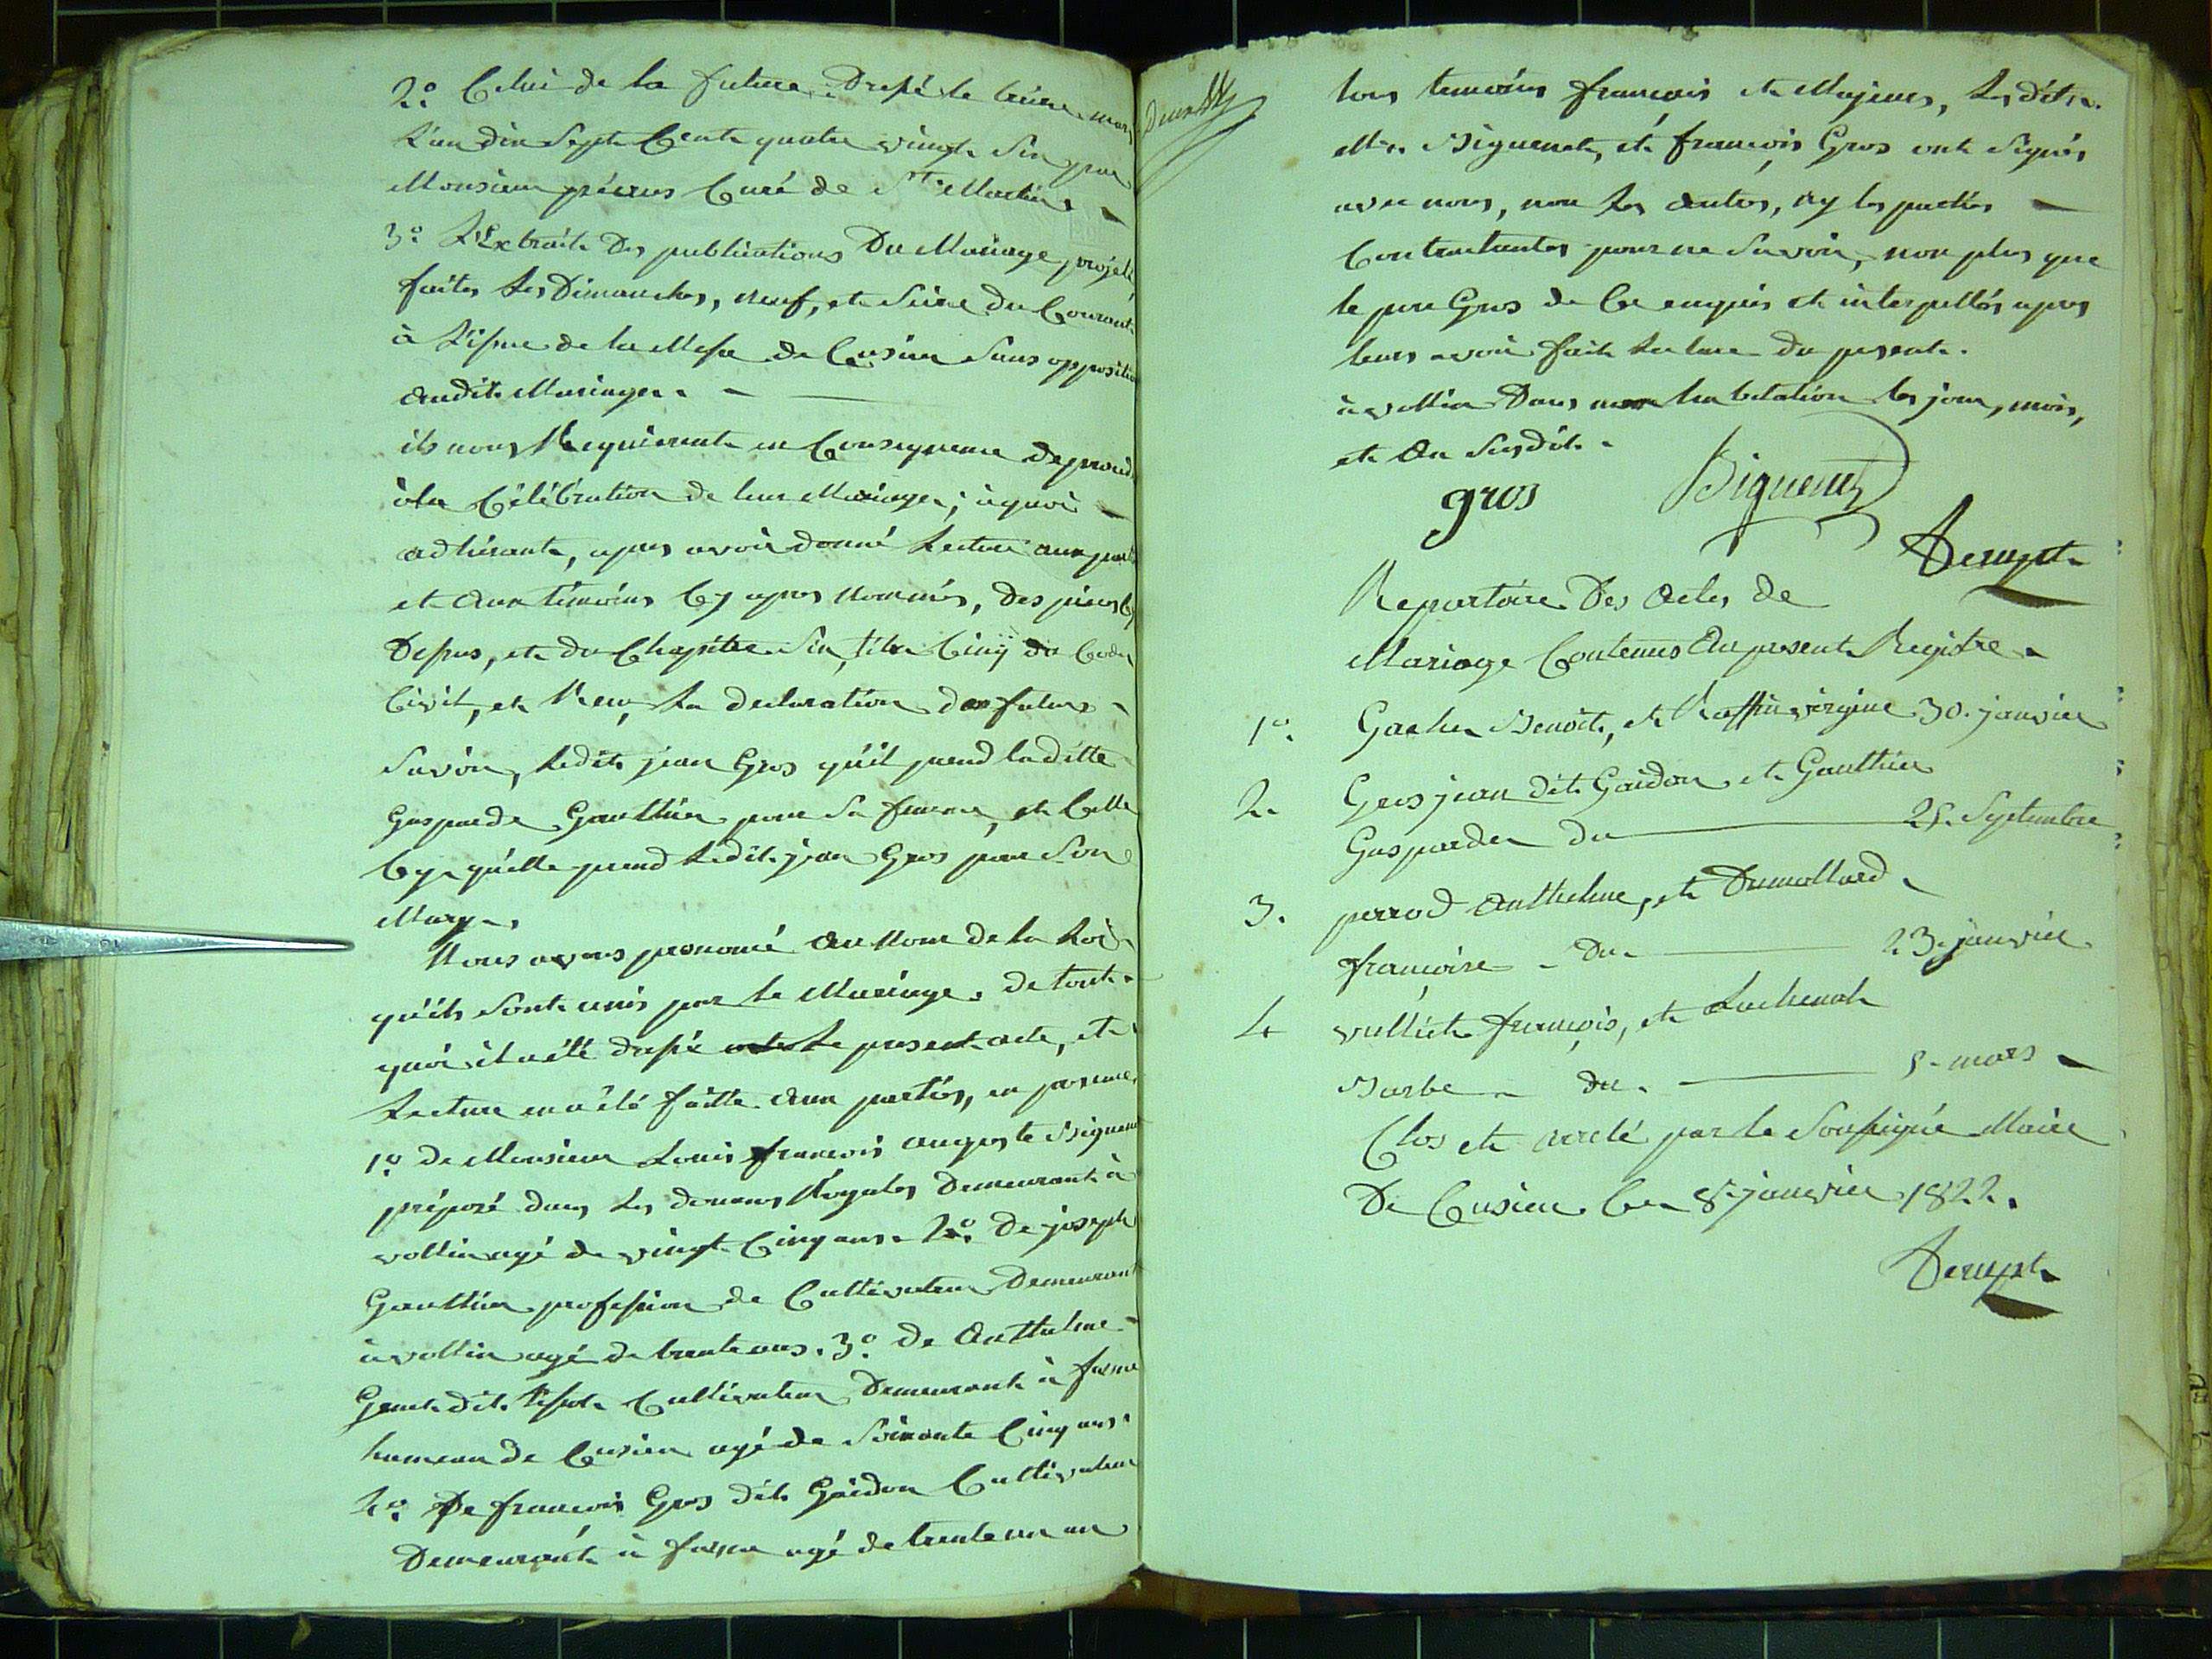 2.° Celui de la future. Dressé le treize mars
L'an dix Sept Cent quatre vingt Six par
Monsieur précrus Curé de St. Martin
3.° L'Extrait Des publications Du Mariage projeté
faites Les Dimanches, neuf, et Seize du Courant
à L'issue de la Messe de Cusieu Sans opposition
audit Mariage.
ils nous Requierent en Consequence de proced
à la Célébration de leur Mariage; à quoi
adhérant, apres avoir donné Lecture aux part
et aux témoins Cy apres nommés, des pieces Cy
Dessus, et du Chapitre Six, titre Cinq du Code
Civil, et Reçu, La declaration des futurs
Savoir, Ledit jean Gros qu'il prend laditte
Gasparde Gaulthier pour Sa femme, et Celle
Cy qu'elle prend Ledit jean Gros pour Son
Mary.
Nous avons prononcé au Nom de la Loi
qu'ils Sont unis par le Mariage. de tout
quoi il a été dressé le present acte, et
Lecture en a été faitte aux parties, en presence,
1.° de Monsieur Louis françois auguste Biguenet
préposé dans Les douanes Royales Demeurant à
vollin agé de vingt Cinq ans. 2.° De joseph
Gaulthier profession de Cultivateur Demeurant
à vollin agé de trente ans. 3.° de Anthelme
Genet dit Cultivateur Demeurant à
hameau de Cusieu agé de Soixante Cinq ans.
4.° De françois Gros dit Gaidon Cultivateur
Demeurant à agé de trente un an
tous temoins français et Majeurs, Les dits
Mrs. Biguenet, et françois Gros ont Signés
avec nous, non Les autres, ny les parties
Contractantes pour ne Savoir, non plus que
le pere Gros de Ce enquis et interpellés apres
leurs avoir fait Lecture du present.
à vollin Dans habitation les jour, mois,
et an Susdit.
gros Biguenet
Repertoire Des Actes de
Mariage Contenus Au present Registre
1.° Benoit, et Raffin virginie 30. janvier
2. Gros jean dit Gaidon et Gaulthier
Gasparde Du 25. Septembre
3. perrod Anthelme, et Dumollard
françoise Du 23. janvier
4 vulliet françois, et
Barbe du 5. mars
Clos et arrêté par le Soussigné Maire
De Cusieu Ce 8 janvier 1822.